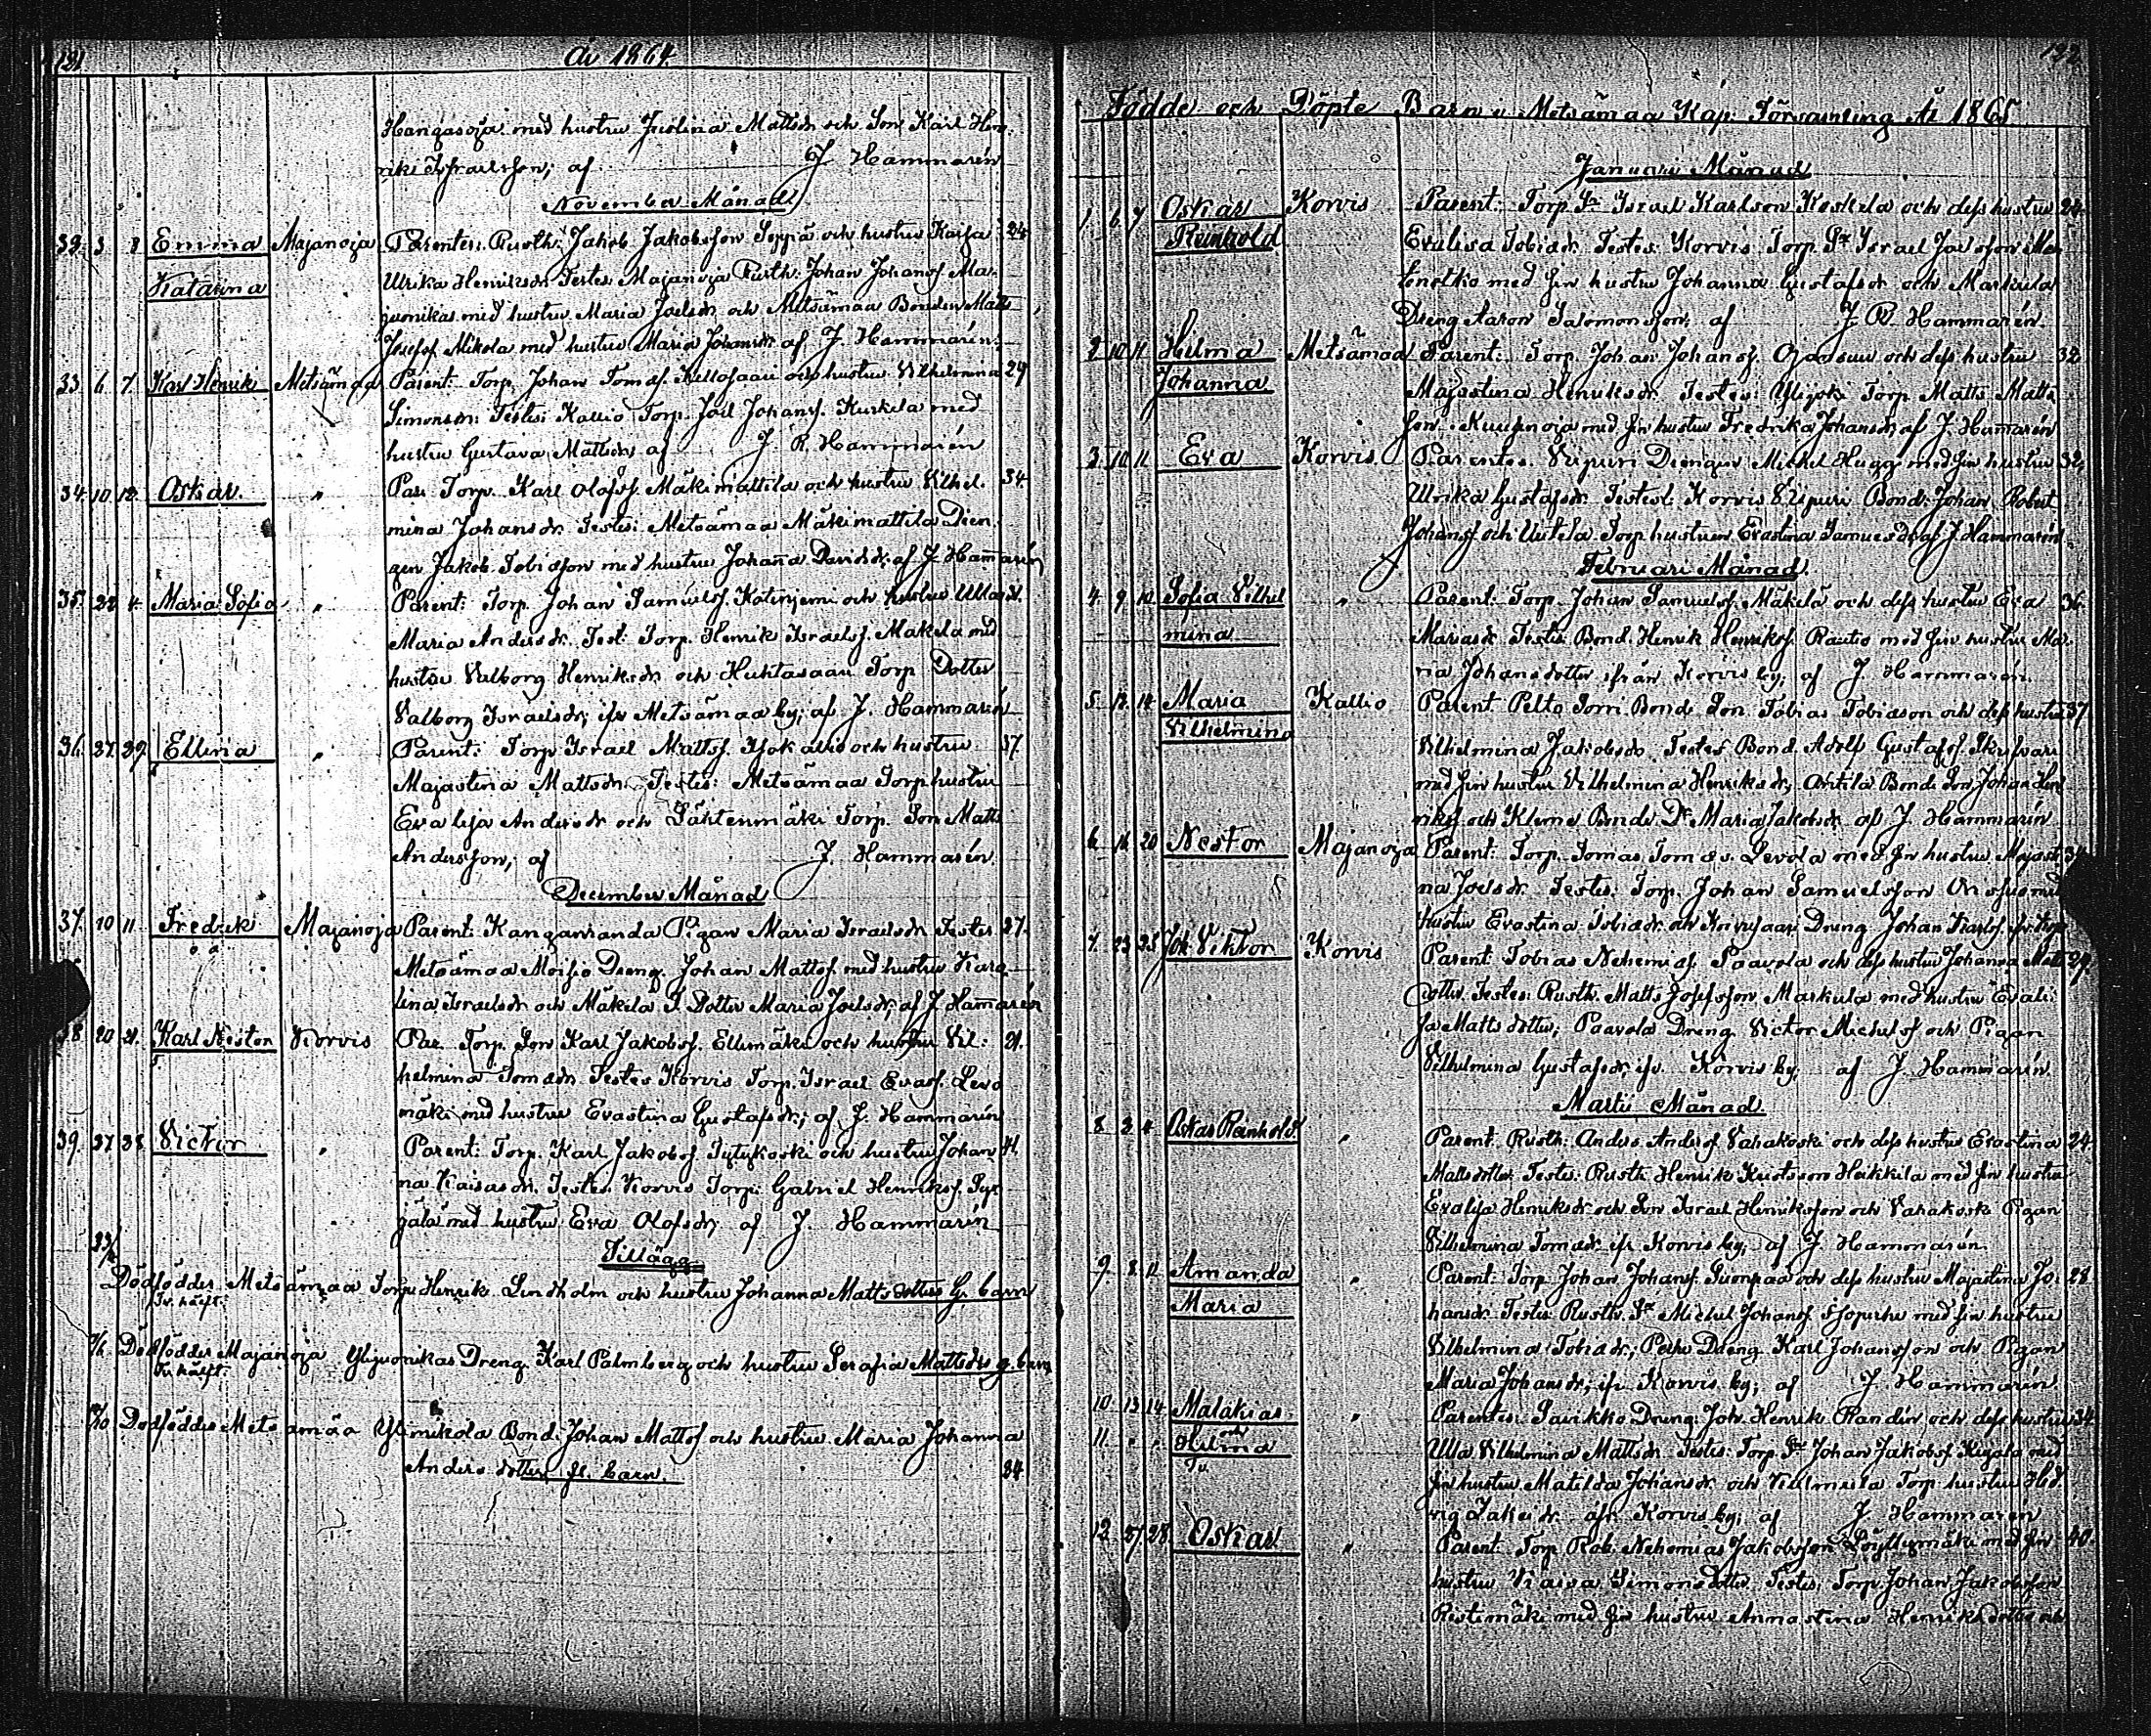 181
År 1864.
Hangasoja med hustru Justina Mattsdr och Son Karl Hen-
rik Israelsson; af J Hammarén
November Månad
32. 3 8 Emma Majanoja Parentes: Rusth. Jakob Jakobsson Seppä och hustru Kaisa 24
Katarina Ulrika Henriksdr Testes Majanoja Rusth. Johan Johansf. Ma-
juonikas med hustru Maria Joelsdr och Metsämaa Bonden Matts
Josefsf Mikola med hustru Maria Johansdr af J. Hammarén.
33 6. 7. Karl Henrik Metsämaa Parent: Torp. Johan Tomasf. Kellosaari och hustru Vilhelmina 29
Simonsdr: Testes: Kallio Torp. Joel Johansf. Kurkela med
hustru Gustava Mattsdr af J. R. Hammarén
34 10 12. Oskar. " Par: Torp. Karl Olofsf. Mäkimattila och hustru Vilhel- 34
mina Johansdr. Testes: Metsämaa Mäkimattila Dren-
gen Jakob Tobiasson med hustru Johanna Davidsdr. af J. Hammarén
35. 22 4. Maria Sofia " Parent: Torp. Johan Samuelsf. Kotiniemi och hustru Ulla
Maria Andersdr. Test: Torp. Henrik Israelsf. Makela med
hustru Valborg Henriksdr och Huhtasaari Torp Dotter
Valborg Israelsdr; ifr Metsämaa by; af J. Hammarén
36. 27. 29. Ellina " Parent: Torp Israel Mattsf. Isokallio och hustru 37.
Majastina Mattsdr. Testes: Metsämaa Torp hustru
Eva Lisa Andersdr och Lähtenmäki Torp. Son Matts
Andersson; af J. Hammarén.
December Månad
37. 10 11. Fredrik Majanoja Parent: Kanganranda Pigan Maria Israelsdr Testes 27.
Metsämaa Moisio Dreng. Johan Mattsf. med hustru Karo-
lina Israelsdr och Mäkelä T. Dotter Maria Joelsdr; af J. Hammarén
38 20 21. Karl Nestor Korvis Par. Torp. Son Karl Jakobsf. Ellimäki och hustru Vil: 21.
helmina Tomasdr Testes Korvis Torp. Israel Evasf. Levo
mäki med hustru Evastina Gustafsdr; af J. Hammarén
39. 27 28. Victor " Parent: Torp. Karl Jakobsf. Tytykoski och hustru Johan 41.
na Kaisasdr. Testes. Korvis Torp: Gabriel Henriksf. Pyr
jälä med hustru Eva Olofsdr; af J. Hammarén
Tillägg
Dödföddes Metsämaa Torp. Henrik Lindholm och hustru Johanna Mattsdotters G. barn
Dödföddes Majanoja Ylijuonikas Dreng. Karl Palmberg och hustru Serafia Mattsdrs g. barn
Dödföddes Metsämaa Ylimikola Bond. Johan Mattsf och hustru Maria Johanna
Anders dotters fl. barn. 34.
182.
Födde och Döpte Barn i Metsämaa Kap. Församling År 1865
Januari Månad
1. 6. 7 Oskar Korvis Parent: Torp. Israel Karlson Koskela och dess hustru 24
Reinhold Evalisa Tobiasdr. Testes: Korvis Torp. Israel Joelsson
med sin hustru Johanna Gustafsdr och Markula
Dreng Aaron Salomonsson; af J. R. Hammarén.
2. 10 11 Hilma Metsämaa Parent: Torp. Johan Johansf. Ojansuu och dess hustru 32
Johanna Majastina Henriksdr Testes: Ylijoki Torp Matts Matts
son Kuusinoja med sin hustru Fredrika Johansdr; af J. Hammarén
3. 10 11. Eva Korvis. Parentes. Viipuri Drengen Mickel Hugg med sin hustru 32.
Ulrika Gustafsdr. Testes: Korvis Viipuri Bond: Johan Robert
Johansf och Uutela Torp hustrun Evastina Samuelsdr af J. Hammarén
Februari Månad.
4 9 12 Sofia Vilhel " Parent: Torp. Johan Samuelsf. Mäkelä och dess hustru Eva 36.
mina Mariasdr Testes Bond. Henrik Henriksf. Rautio med sin hustru Ma-
ria Johansdotter ifrån Korvis by; af J. Hammarén.
5. 12. 14 Maria Kallio Parent Pelto Jorri Bonde Son Tobias Tobiason och dess hustru 37.
Vilhelmina Vilhelmina Jakobsdr Testes Bond. Adolf Gustafsf.
med sin hustru Vilhelmina Henriksdr; Anttila Bonde Son Johan Hen
riksf. och Kleme Bonde Dr Maria Jakobsdr af J. Hammarén
6. 16 20 Nestor Majanoja Parent: Torp. Tomas Tomass. Levola med sin hustru Majasti
na Joelsdr Testes: Torp. Johan Samuelsson Orisfuo med
hustru Evastina Tobiasdr och Koivusaari Dreng Johan Karlsf.
7. 23 25 Joh. Viktor Korvis Parent: Tobias Nehemiasf. Paavola och dess hustru Johanna Matts 29.
dotter Testes: Rusth. Matts Josefsson Markula med hustru Evali-
sa Matts dotter; Paavola Dreng Victor Michelsf och Pigan
Vilhelmina Gustafsdr ifr. Korvis by; af J. Hammarén.
Martii Månad.
8. 2 4 Oskar Reinhold " Parent: Rusth: Anders Andersf. Vahakoski och dess hustru Evastina 24.
Mattsdotter Testes: Rusth Henrik Heikkila med sin hustru
Evalisa Henriksdr och Son Israel Henriksson och Vahakoski Pigan
Vilhelmina Tomasdr ifr Korvis by; af J. Hammarén.
9. 8. 12 Amanda " Parent: Torp. Johan Johansf. Suonpää och dess hustru Majastina Jo- 28
Maria hansdr Testes Rusth. Michel Johansf. med sin hustru
Vilhelmina Tobiasdr; Dreng Karl Johansson och Pigan
Maria Johansdr; ifr Korvis by; af J. Hammarén.
10 13 14 Malakias " Parentes: Savikko Dreng. Joh. Henrik Randén och dess hustru 34
11. " " och Hilma Ulla Vilhelmina Mattsdr Testes: Torp. Johan Jakobsf. med
Tv. sin hustru Matilda Johansdr och Torp hustru Hed-
vig Zakeidr ifr Korvis by; af J. Hammarén
12. 27. 28. Oskar " Parent: Torp. Rob. Nehemias Jakobsson Löyttymäki med sin 40.
hustru Kaisa Simonsdotter Testes; Torp. Johan Jakobsson
Ristimäki med sin hustru Annastina Henriksdotter och